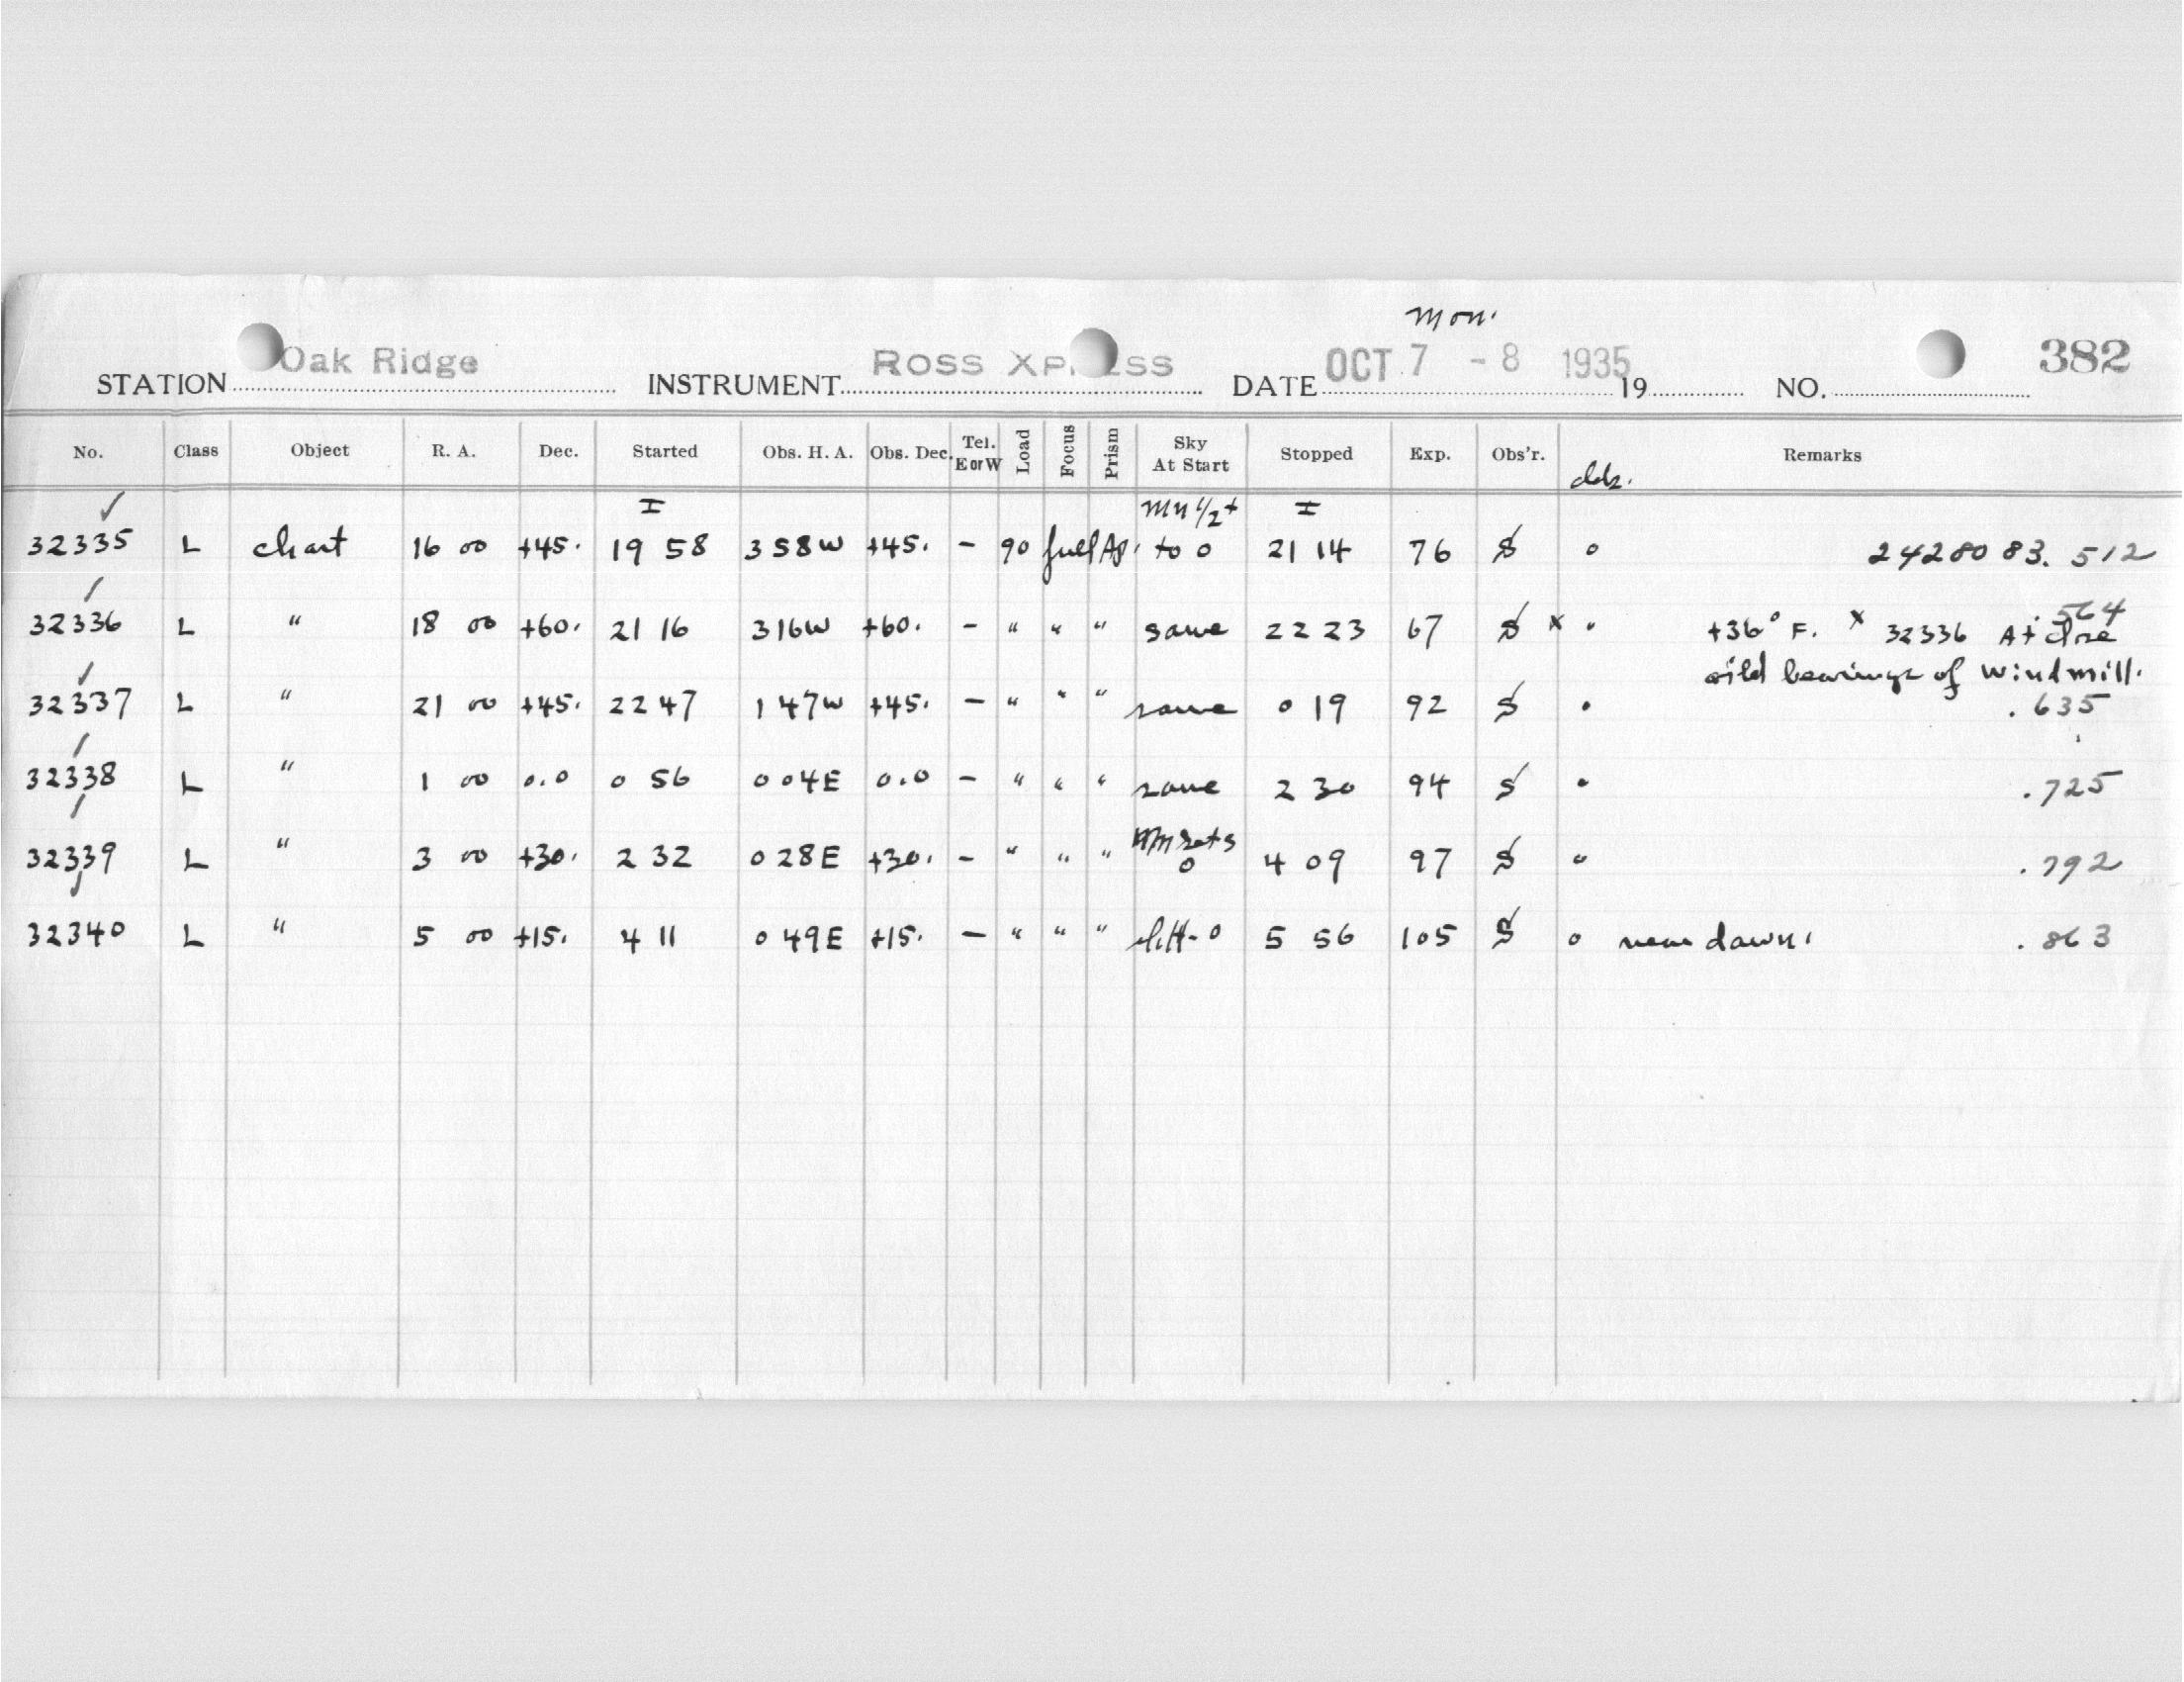 Mon.
STATION Oak Ridge INSTRUMENT ROSS XP ESS DATE OCT 7 - 8 1935 19 NO. 382
No. Class Object R. A. Dec. Started Obs. H. A. Obs. Dec. Tel. E or W Load Focus Prism Sky At Start Stopped Exp. Obs'r. Remarks
I Mn 1/2+ I
32335 L chart 16 00 +45. 19 58 3 58W +45. - 90 full Ap. to 0 21 14 76 S 0 2428083.512
32336 L " 18 00 +60. 21 16 3 16W +60. - " " " same 22 23 67 S x 0 +36° F. x 32336 At close .564
oild bearings of windmill.
32337 L " 21 00 +45. 22 47 1 47W +45. - " " " same 0 19 92 S 0 .635
32338 L " 1 00 0.0 0 56 0 04E 0.0 - " " " same 2 30 94 S 0 .725
32339 L " 3 00 +30. 2 32 0 28E +30. - " " " Mn sets 0 4 09 97 S 0 .792
32340 L " 5 00 +15. 4 11 0 49E +15. - " " " 0 5 56 105 S 0 near dawn. .863